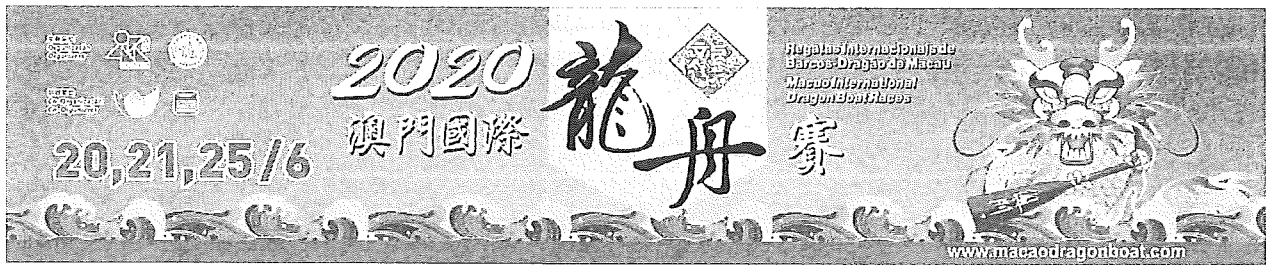 2020
澳門國際
龍舟
賽
Regatas Internacionais de
Barcos-Dragão de Macau
Macao International
Dragon Boat Races
20,21,25/6
www.macaodragonboat.com